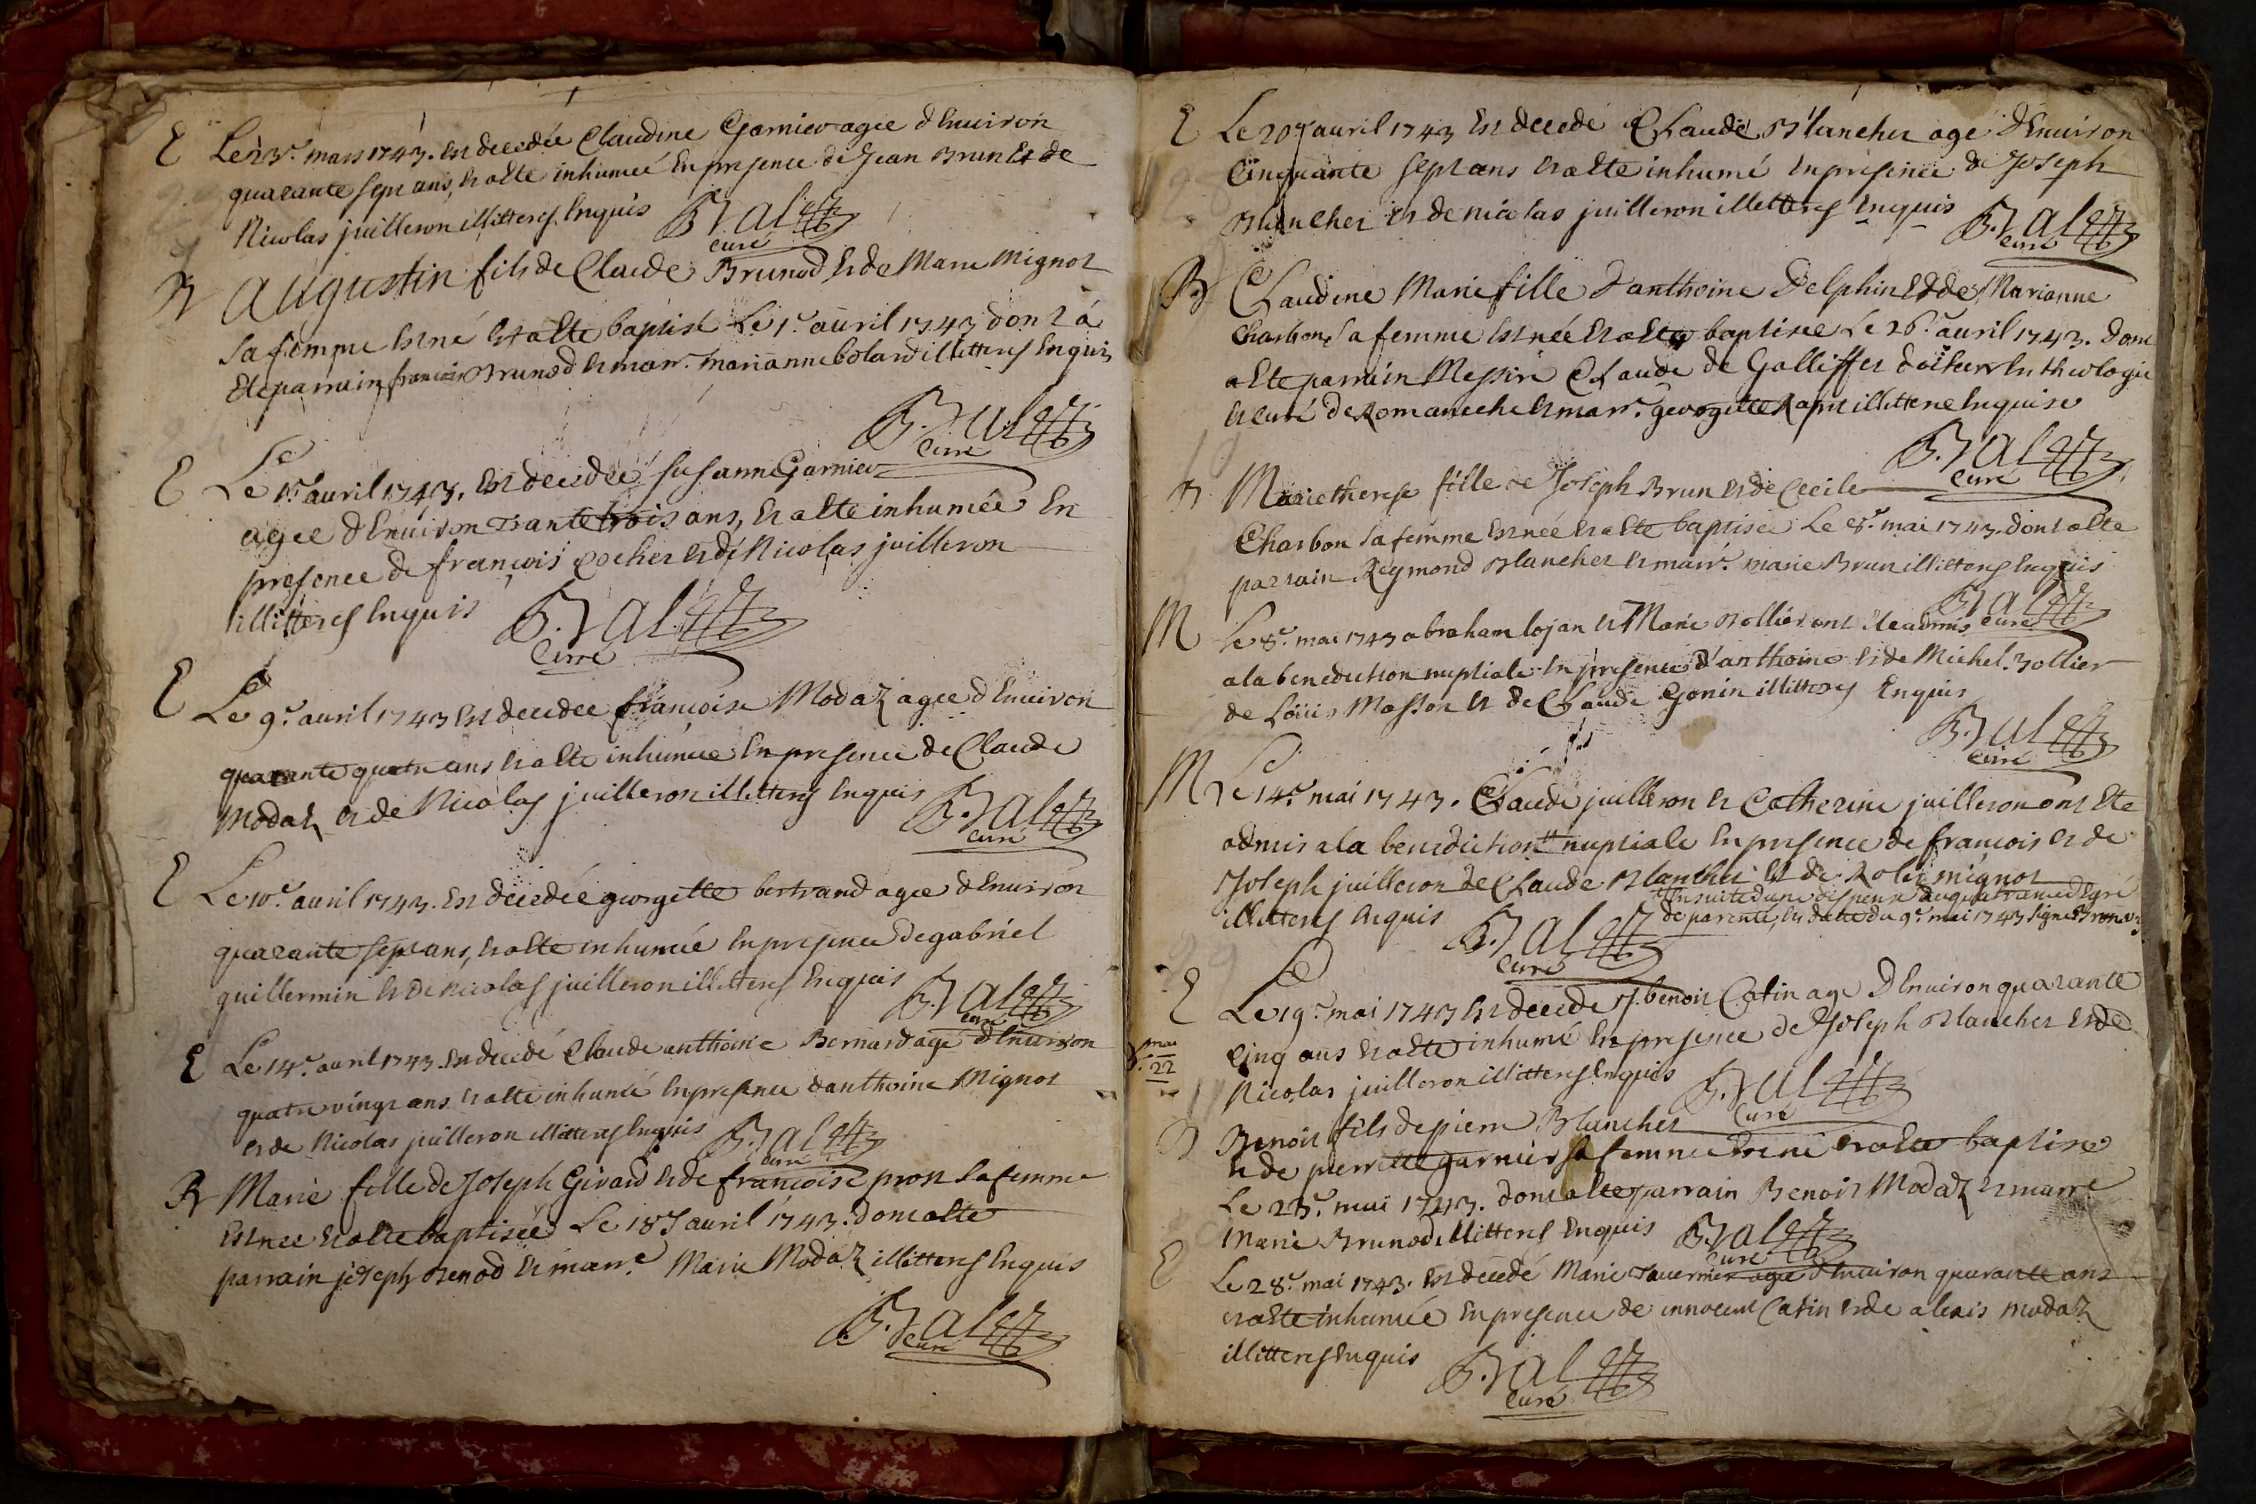 E Le 23e. mars 1743. est decedée Claudine Garnier agee d'Environ
quarante sept ans, et a Eté inhumeé En presence de Jean Brun Et de
Nicolas juilleron illitterés Enquis
curé
B Augustin fils de Claude Brunod et de Marie Mignot
sa femme est né Et a Eté baptisé Le 1r. auril 1743 dont a
Eté parrain francois Brunod et marr. marianne bolard illitterés Enquis
curé
E Le auril 1743. est decedeé susanne Garnier
agee d'Enuiron ans, et a Eté inhumée En
presence de françois cocher et de Nicolas juilleron
illitterés Enquis
Curé
E Le 9e. auril 1743 est decedee francoise Modaz agee d'Enuiron
quarante quatre ans et a Eté inhumee En presence de Claude
Modaz et de Nicolas juilleron illitterés Enquis
curé
E Le 10e. auril 1743. est decedée georgette bertrand agee d'Enuiron
quarante sept ans, et a Eté inhumée En presence de gabriel
guillermin et de nicolas juilleron illitterés Enquis
curé
E Le 14e. auril 1743. est decedé Claude anthoine Bernard agé d'Enuiron
quatre vingt ans et a Eté inhumé En presence d'anthoine Mignot
et de Nicolas juilleron illitterés Enquis
curé
B Marie fille de Joseph Girard et de francoise prost sa femme
Est née et a Eté baptiseé Le 18e auril 1743. dont a Eté
parrain joseph Renod et marre. Marie Modaz illitterés Enquis
curé
E Le 20e auril 1743 Est decedé Claude Blanchet agé d'Enuiron
Cinquante sept ans et a Eté inhumé En presence de Joseph
Blanchet et de nicolas juilleron illitterés Enquis
curé
B Claudine Marie fille d'anthoine Delphin Et de Marianne
Charbon sa femme Est née et a Eté baptisee Le 26e. auril 1743. dont
a Eté parrain Messire Claude de Galliffet docteur En theologie
et curé de Romaneche et marr. georgette illitterée Enquise
curé
B Marie therese fille de Joseph Brun et de Cecile
Charbon sa femme Est née et a Eté baptisée Le 8e. mai 1743. dont a Eté
parrain Reymond Blanchet et marr. marie Brun illitterés Enquis
curé
M Le 8e. mai 1743 abraham lojan et Marie ont Eté admis
a la benediction nuptiale En presence d'anthoine et de Michel
de Loüis Masson et de Claude Gonin illitterés Enquis
curé
M Le 14e. mai 1743. Claude juilleron et Catherine juilleron ont Eté
admis a la benediction nuptiale En presence de francois et de
Joseph juilleron de Claude Blanchet et de mignot
Ensuite d'une dispense du quatrieme degré
illitterés Enquis
de parenté, En datte du 9e. mai 1743 signé
curé
E Le 19e. mai 1743 Est decedé J. benoit Catin agé D'Enuiron quarante
Cinq ans et a Eté inhumé En presence de Joseph Blanchet et de
mai
22
Nicolas juilleron illitterés Enquis
curé
B Benoit fils de pierre Blanchet
et de pierrette garnier sa femme Est né et a Eté baptisé
Le 23e. mai 1743. dont a Eté parrain Benoit Modaz et marre
marie Brunod illitterés Enquis
curé
E Le 28e. mai 1743. Est decedé Marie Tauernier agee d'Enuiron quarante ans
et a Eté inhumeé En presence de innocent Catin et de alexis Modaz
illitterés Enquis
curé